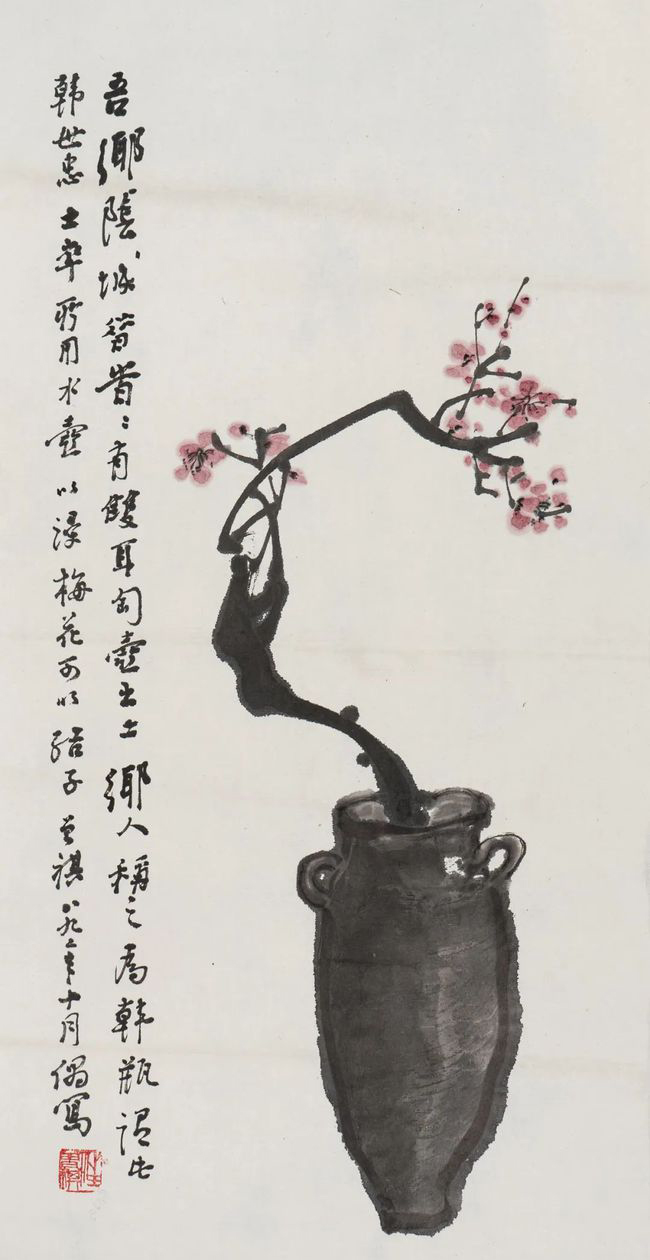 吾鄉陰城皆有雙耳匋壺出土鄉人稱之為韓瓶謂此
韓世忠士卒所用水壺以浸梅花可以結子曾祺八九年十月偶寫